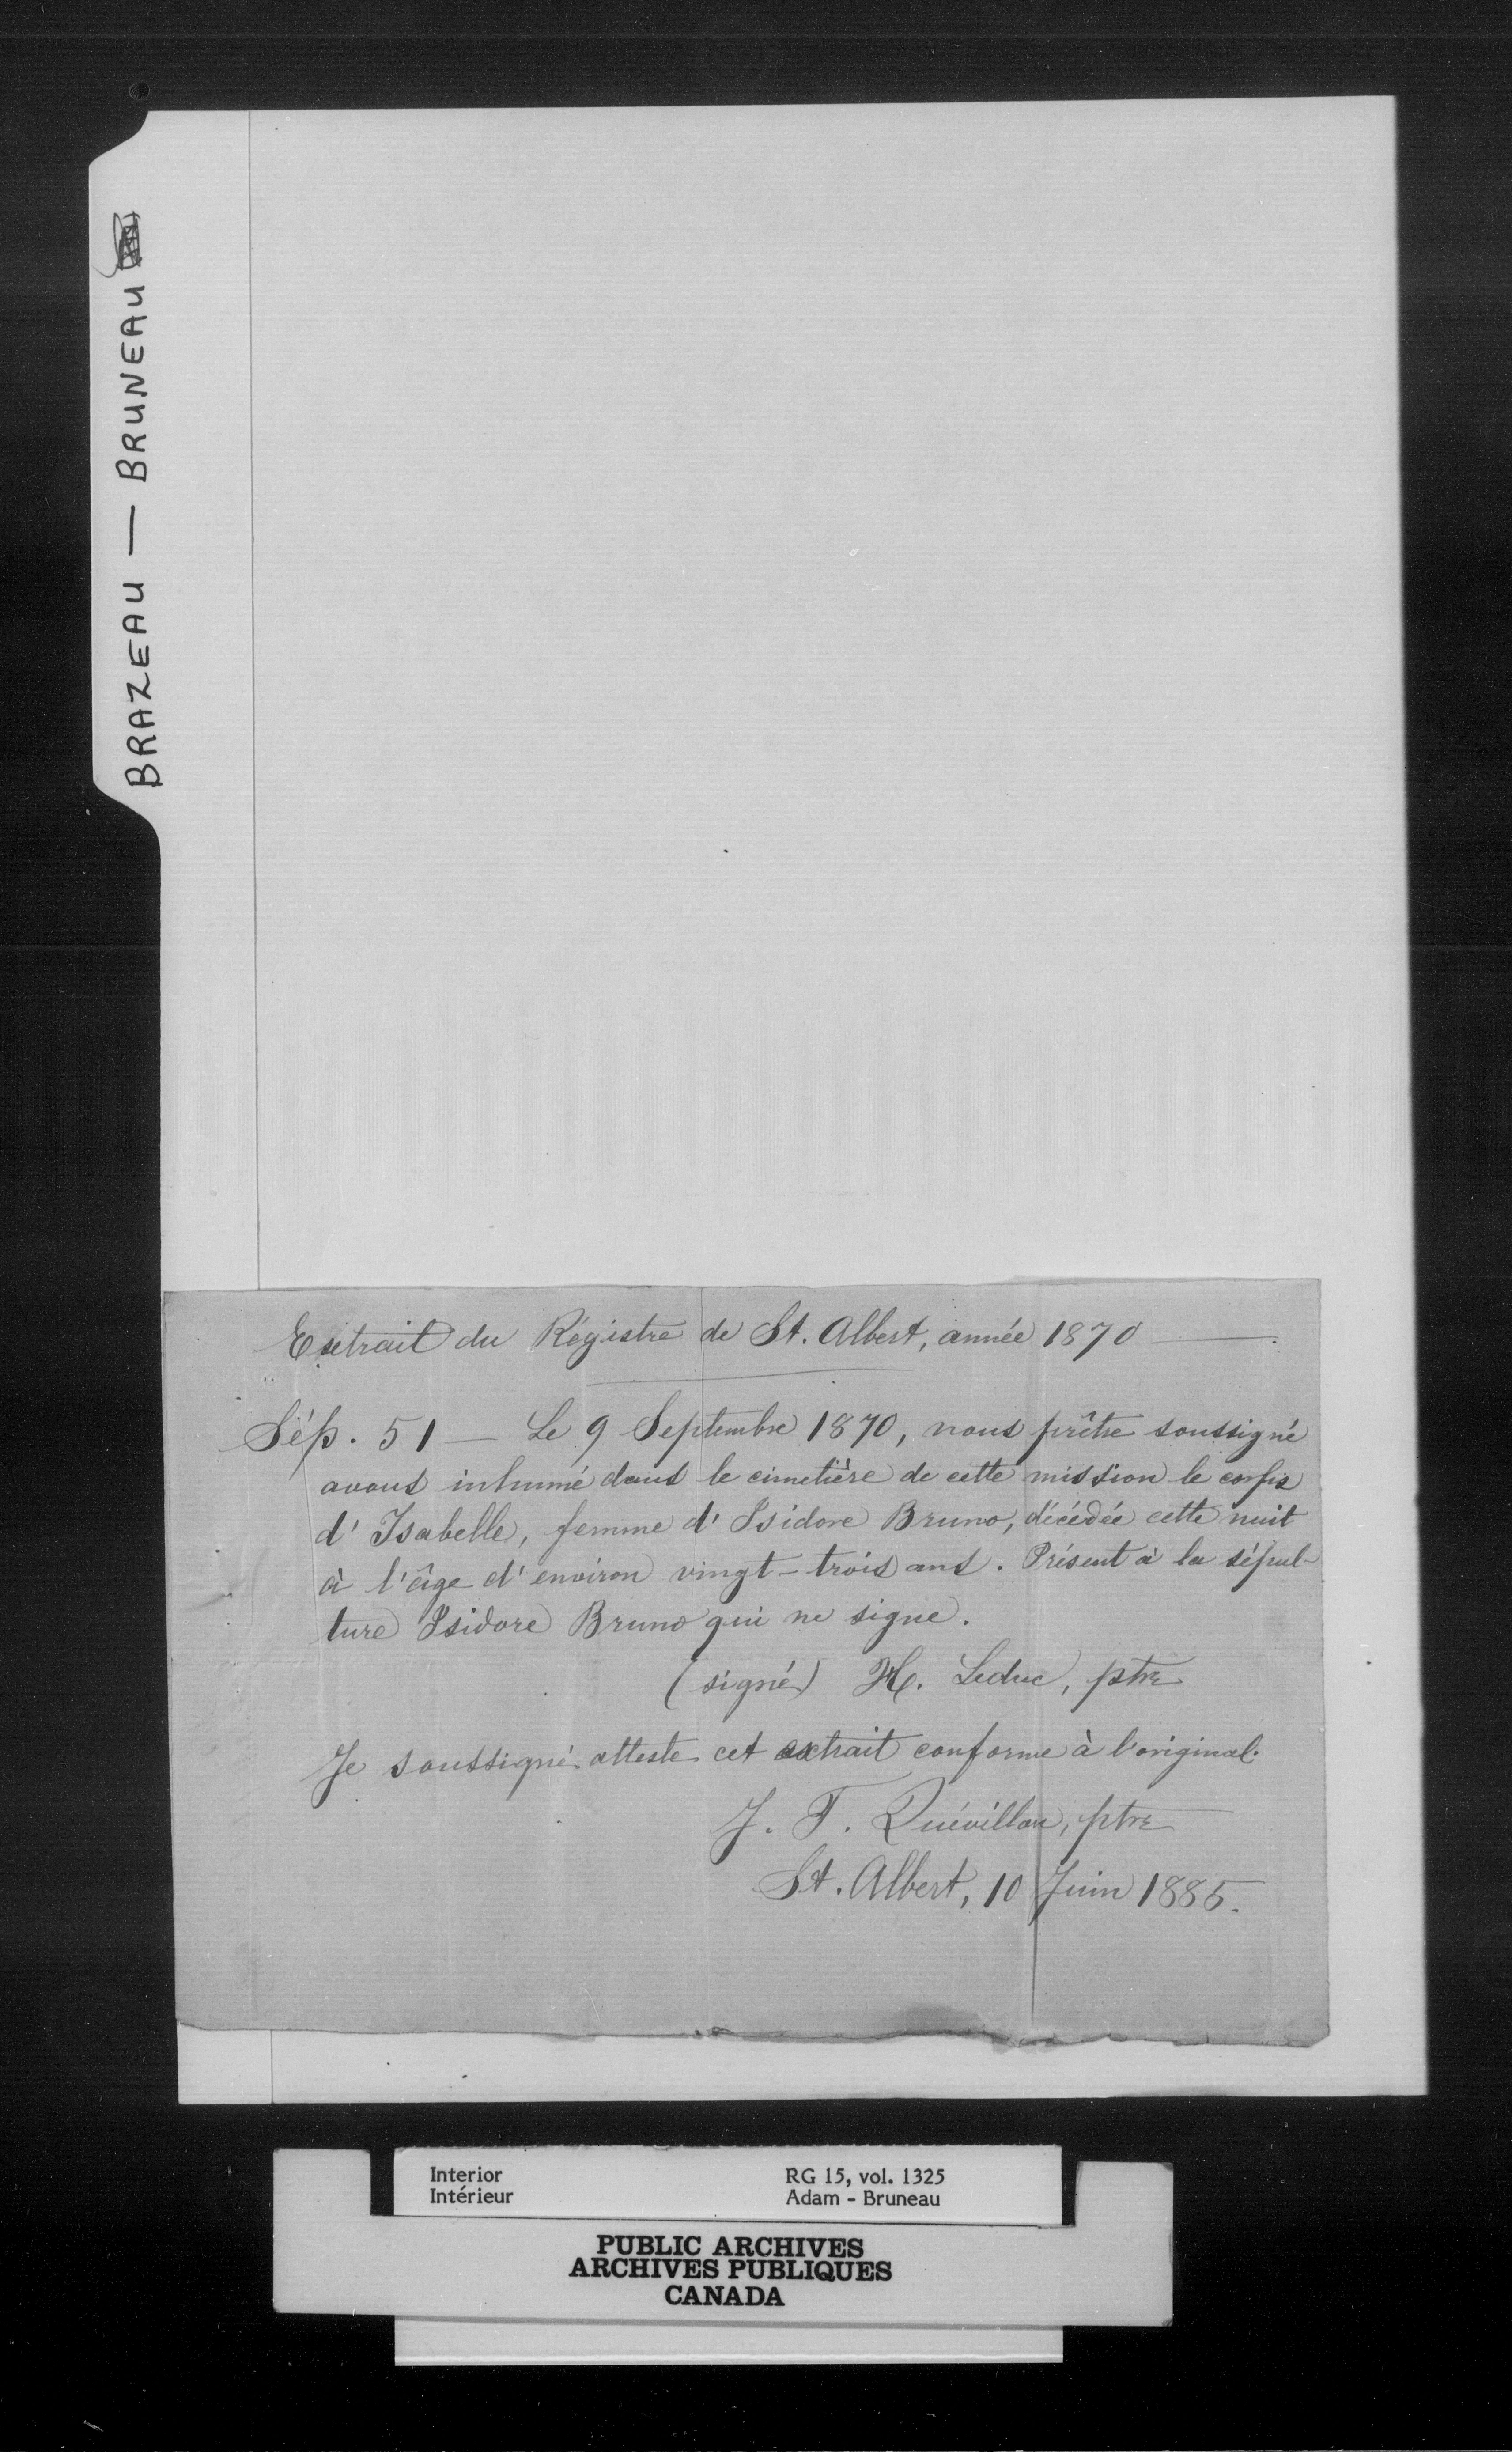 BRAZEAU — BRUNEAU
Extrait du Régistre de St. Albert, année 1870 —.
Sép. 51 — Le 9 Septembre 1870, nous prêtre soussigné
avons inhumé dans le cimetière de cette mission le corps
d'Isabelle, femme d'Isidore Bruno, décédée cette nuit
à l'âge d'environ vingt-trois ans. Présent à la sépul-
ture Isidore Bruno qui ne signe.
(signé) H. Leduc, ptre
Je soussigné atteste cet extrait conforme à l'original.
J. T. Quévillon, ptre
St. Albert, 10 Juin 1885.
Interior RG 15, vol. 1325
Intérieur Adam - Bruneau
PUBLIC ARCHIVES
ARCHIVES PUBLIQUES
CANADA